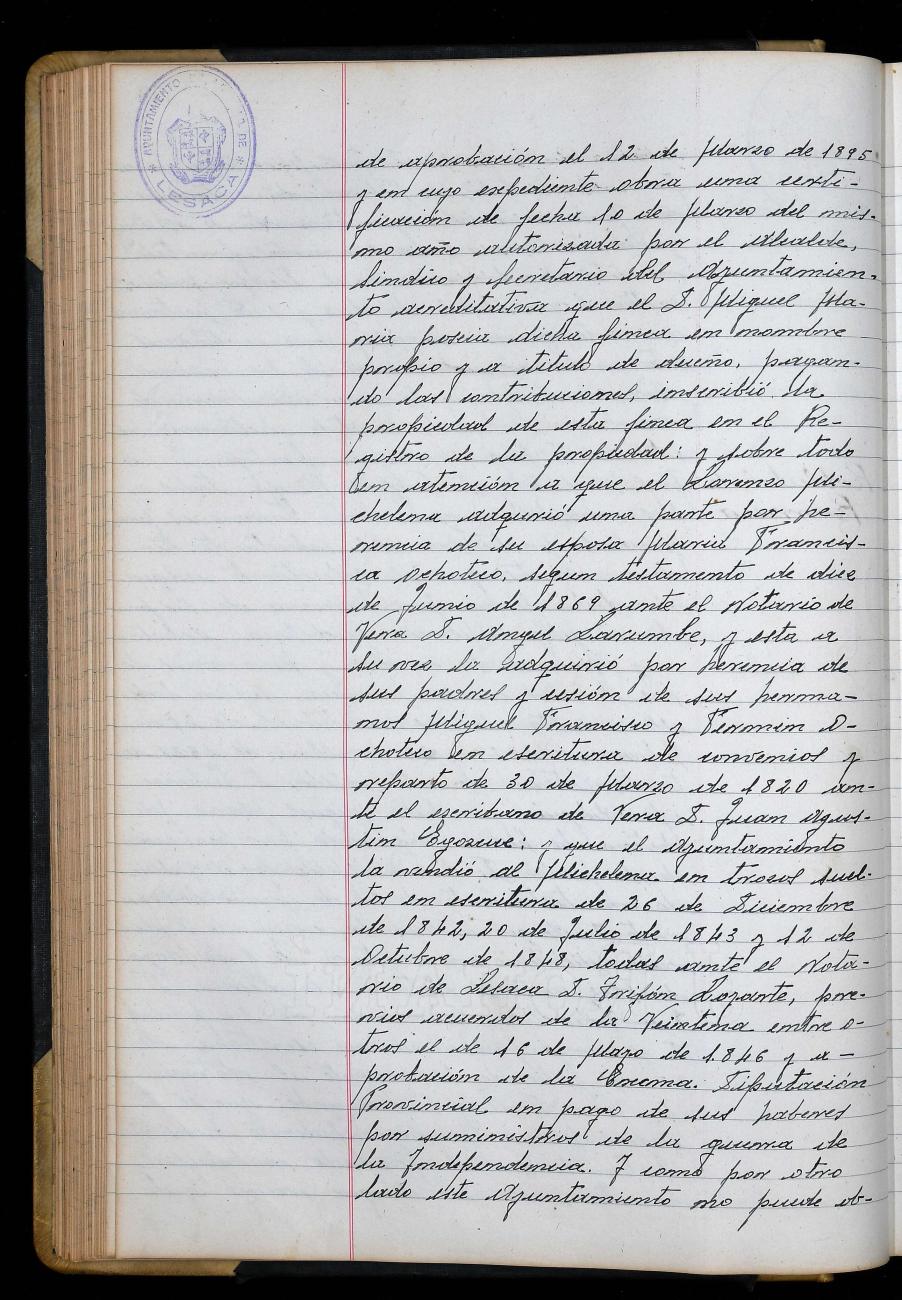 AYUNTAMIENTO DE
LESACA
de aprobación el 12 de Marzo de 1895
y en cuyo expediente obra una certi-
ficación de fecha 10 de Marzo del mis-
mo año autorizada por el Alcalde,
Sindico y Secretario del Ayuntamien-
to acreditativa que el D. Miguel Ma-
ria poseia dicha finca en nombre
propio y a titulo de dueño, pagan-
do las contribuciones, inscribió la
propiedad de esta finca en el Re-
gistro de la propiedad: y sobre todo
en atención a que el Lorenzo Mi-
chelena adquirió una parte por he-
rencia de su esposa Maria Francis-
ca Ochoteco, segun testamento de diez
de Junio de 1869 ante el Notario de
Vera D. Angel Larumbe, y esta a
su vez la adquirió por herencia de
sus padres y cesión de sus herma-
nos Miguel Francisco y Fermin O-
choteco en escritura de convenios y
reparto de 30 de Marzo de 1820 an-
te el escribano de Vera D. Juan Agus-
tin Egozcue: y que el Ayuntamiento
la vendió al Michelena en trozos suel-
tos en escritura de 26 de Diciembre
de 1842, 20 de Julio de 1843 y 12 de
Octubre de 1848, todas ante el Nota-
rio de Lesaca D. Trifón Lozarte, pre-
vios acuerdos de la Veintena entre o-
tros el de 16 de Mayo de 1846 y a-
probación de la Excma. Diputación
Provincial en pago de sus haberes
por suministros de la guerra de
la Independencia. Y como por otro
lado este Ayuntamiento no puede ob-